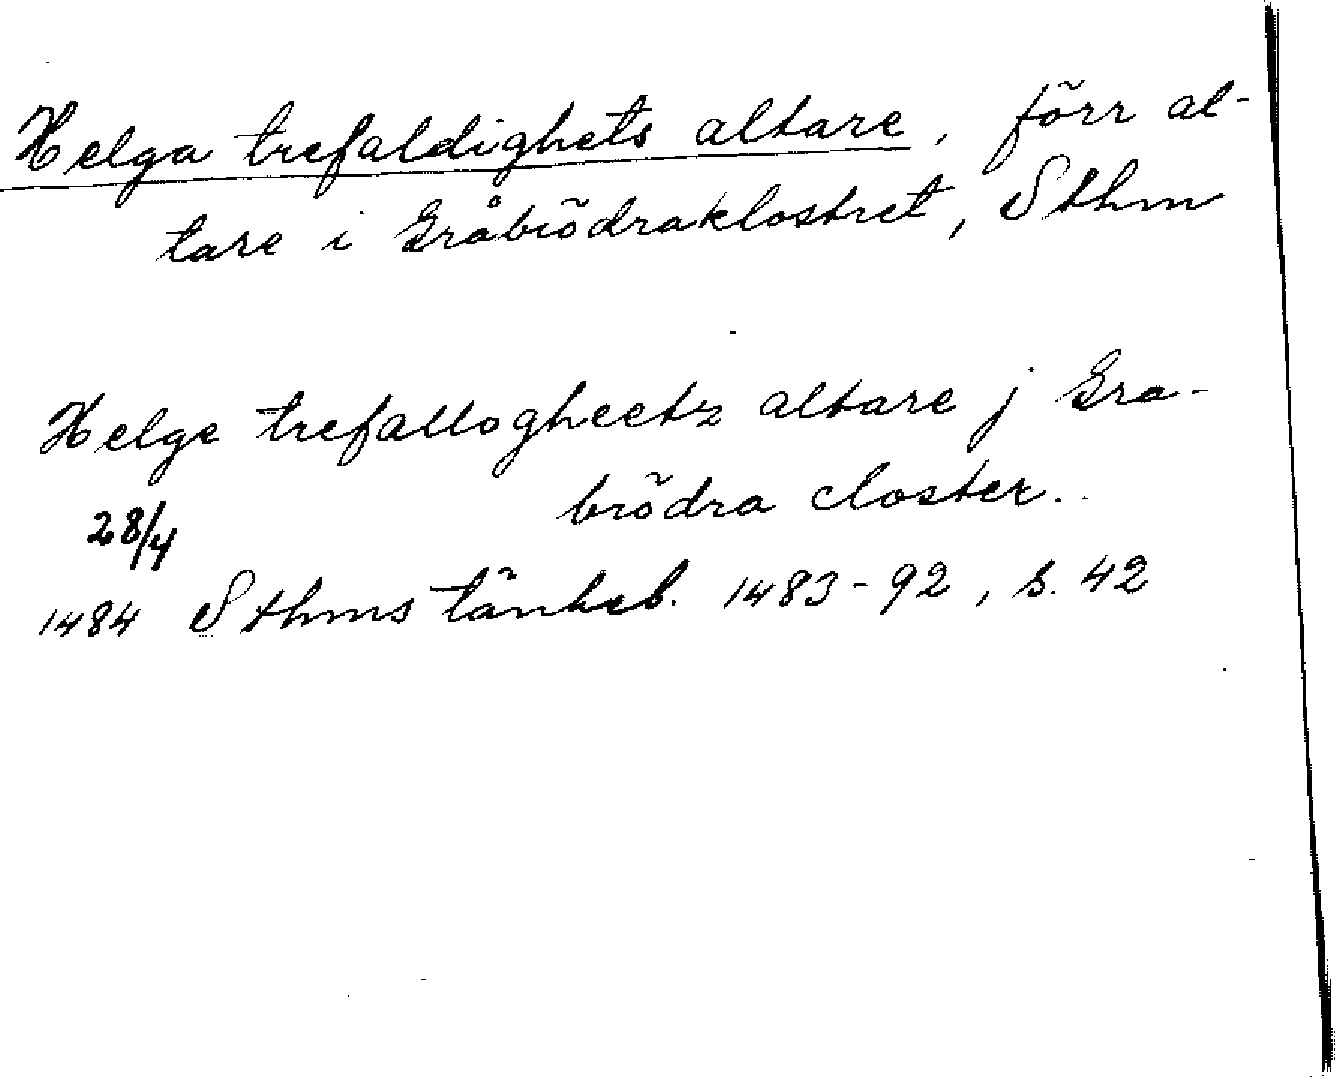 Helga trefaldighets altare, förr al-
tare i Gråbrödraklostret, Sthm
Helge trefallogheetz altare j Gra-
brödra closter.
28/4
1484 Sthms tänkeb. 1483-92, s. 42